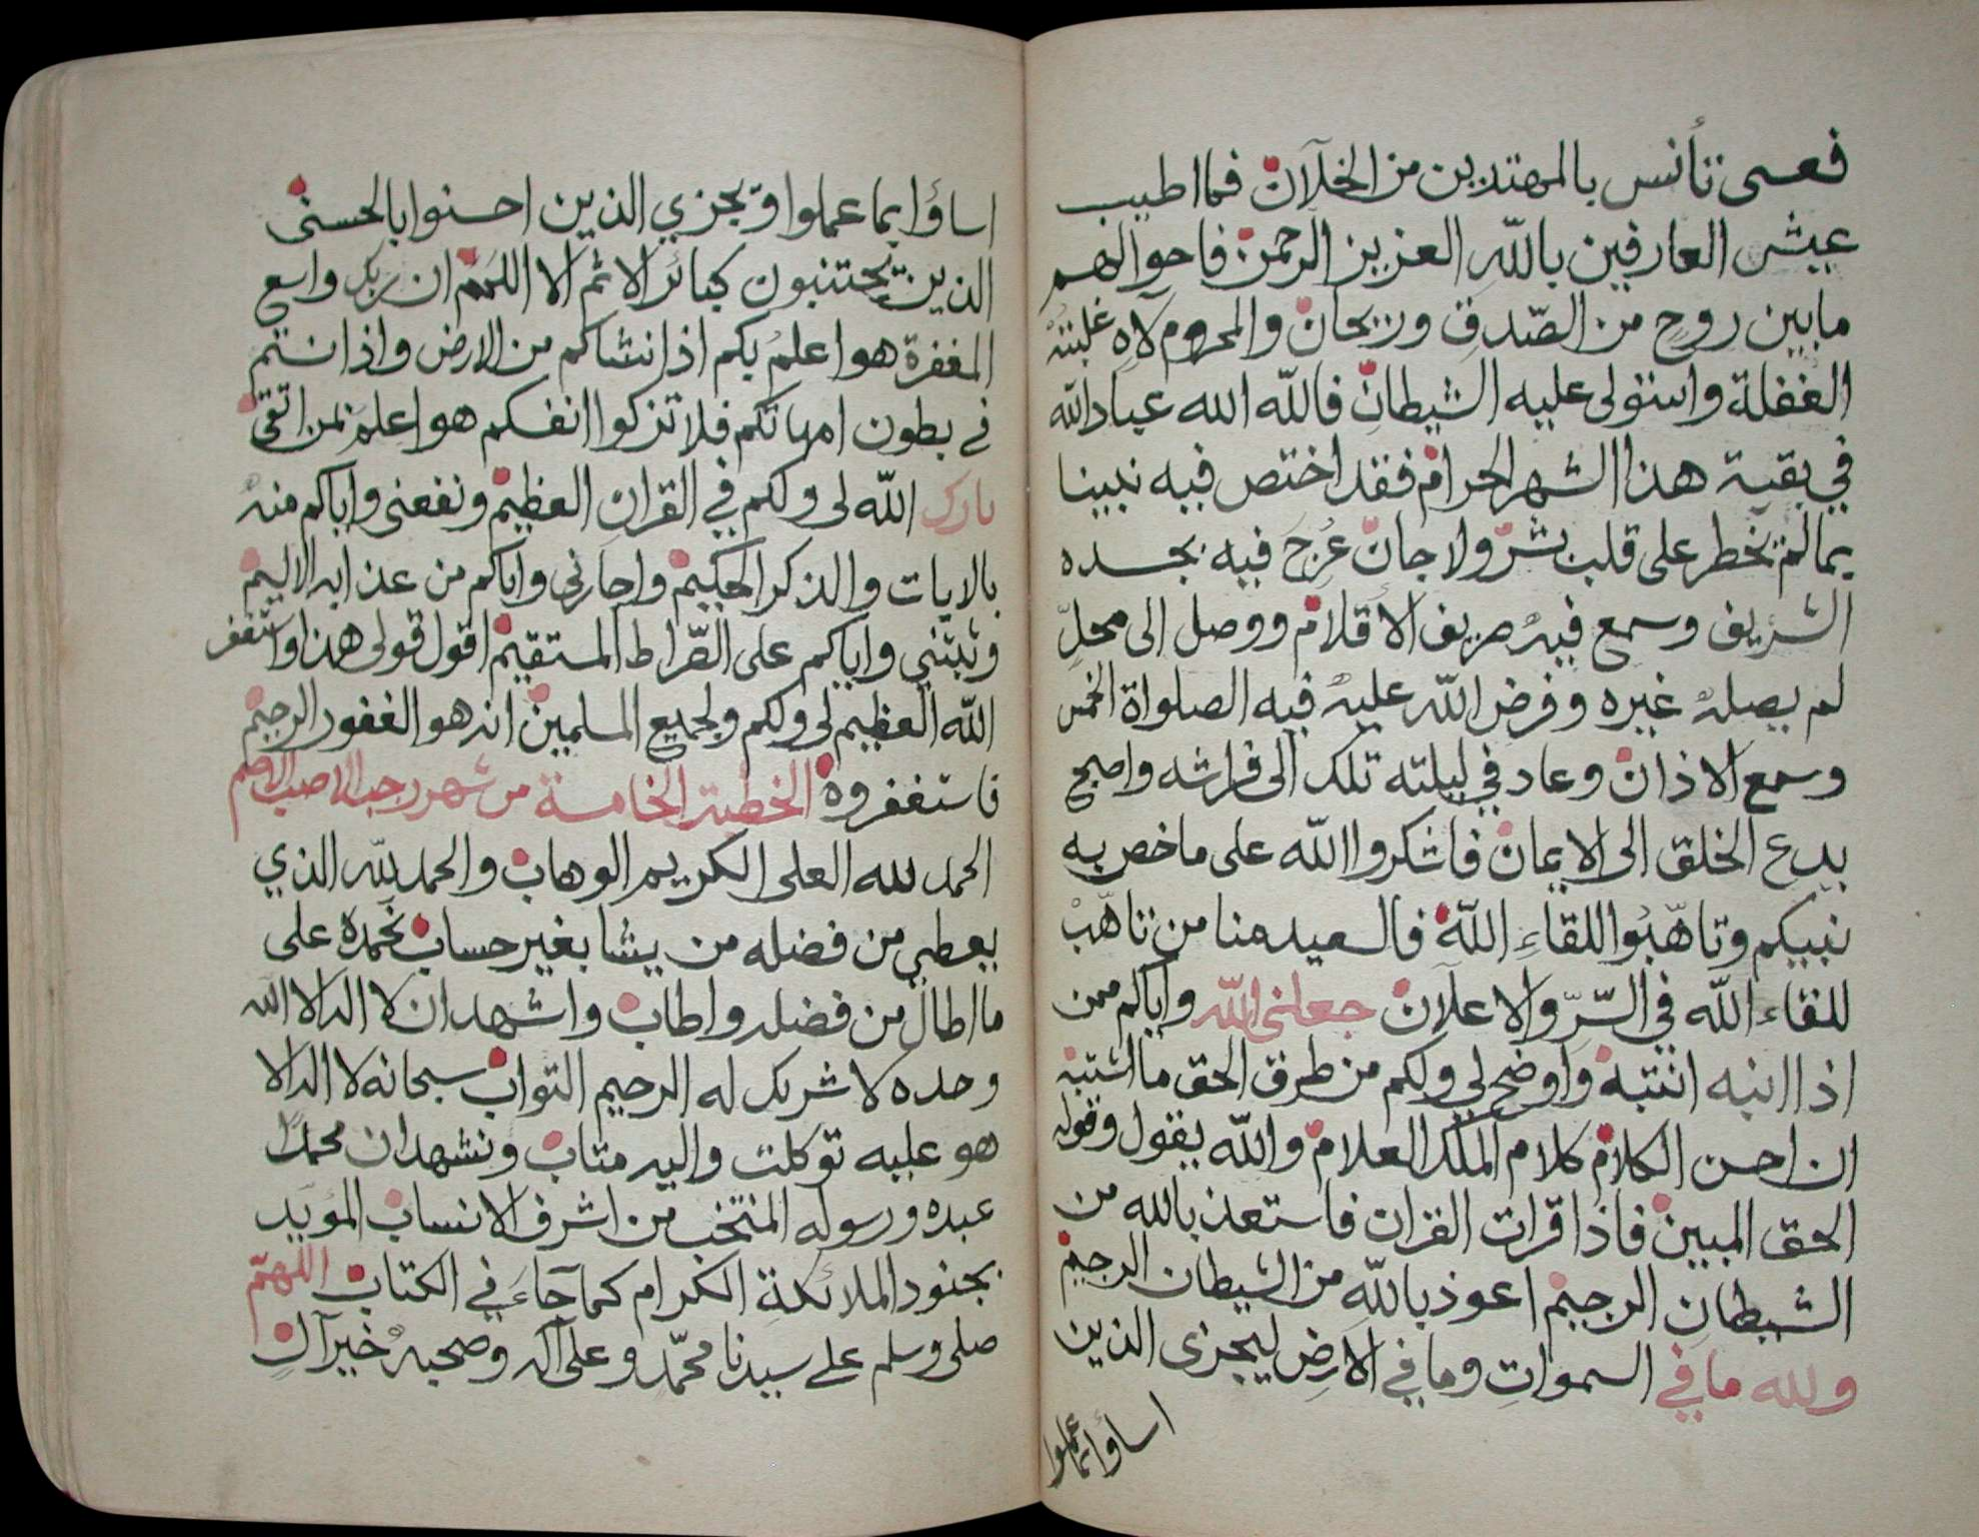 فعسى تأنس بالمهتدين من الخلآن فما اطيب
عيش العارفين بالله العزيز الرحمن فاحوالهم
ما بين روح من الصّدق وريحان والمحروم لاهٍ غلبته
الغفلة واستولى عليه الشيطان فالله الله عباد الله
في بقية هذا الشهر الحرام فقد اختص فيه نبينا
بما لم يخطر على قلب بشر ولا جان عُرج فيه بجسده
الشريف وسمع فيه صريف الأقلام ووصل الى محلّ
لم يصله غيره وفرض الله عليه فيه الصلواة الخمس
وسمع الاذان وعاد في ليلته تلك الى فراشه واصبح
يدع الخلق الى الايمان فاشكروا الله على ما خص به
نبيكم وتاهّبُوا للقاءِ اللّه فالسعيد منا من تاهّبْ
للقاء الله في السّرّ والاعلان جعلني الله واياكم ممن
اذا انبه انتبه واوضح لي ولكم من طرق الحق ما اشتبه
ان احسن الكلام كلام الملك العلام والله يقول وقوله
الحق المبين فاذا قرات القران فاستعذ بالله من
الشيطان الرجيم اعوذ بالله من الشيطان الرجيم
ولله ما في السموات وما في الارض ليجزى الذين
اساؤا بما عملوا
اساؤا بما عملوا ويجزي الذين احسنوا بالحسنى
الذين يجتنبون كبائر الاثم الا اللمم ان ربك واسع
المغفرة هو اعلم بكم اذ انشاكم من الارض واذ انتم
في بطون امهاتكم فلا تزكوا انفسكم هو اعلم بمن اتقى
بارك الله لى ولكم في القران العظيم ونفعنى واياكم منه
بالايات والذكر الحكيم واجارني واياكم من عذابه الاليم
وثبتني واياكم على الصّراط المستقيم اقول قولى هذا واستغفر
الله العظيم لي ولكم ولجميع المسلمين انه هو الغفور الرحيم
فاستغفروه الخطبة الخامسة من شهر رجب الاصب الاصم
الحمد لله العلى الكريم الوهاب والحمد لله الذي
يعطي من فضله من يشا بغير حساب نحمده على
ما اطال من فضله واطاب واشهد ان لا اله الا الله
وحده لا شريك له الرحيم التواب سبحانه لا اله الا
هو عليه توكلت واليه متاب ونشهد ان محمدًا
عبده ورسوله المنتخب من اشرف الانساب المؤيد
بجنود الملائكة الكرام كما جآءَ في الكتاب اللهمّ
صلى وسلم على سيدنا محمّد وعلى آله وصحبه خير آل